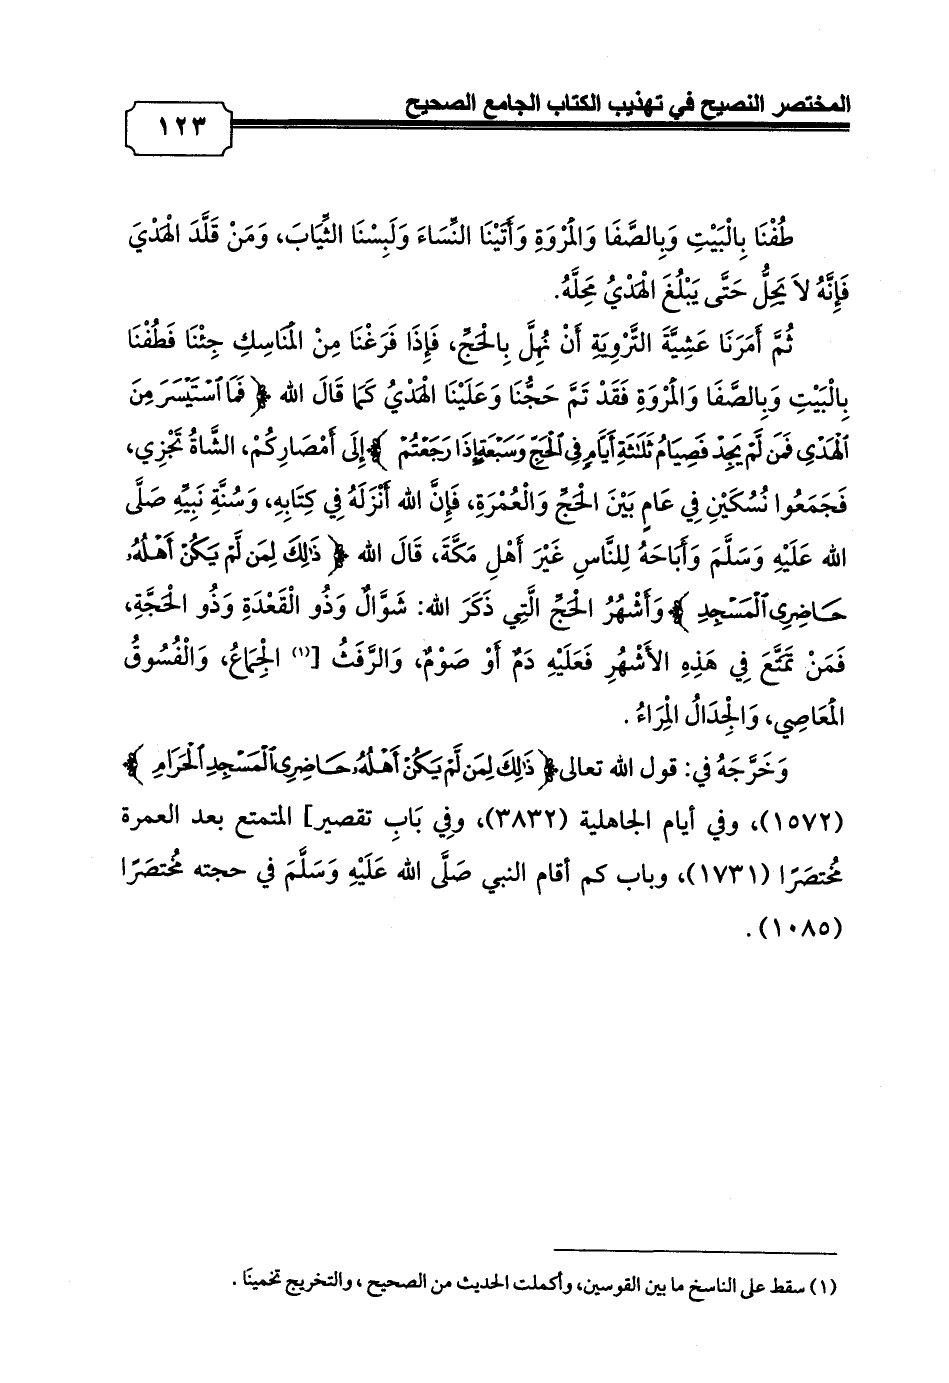 المختصر النصيح في تهذيب الكتاب الجامع الصحيح
١٢٣
طُفْنَا بِالْبَيْتِ وَبِالصَّفَا وَالْمَرْوَةِ وَأَتَيْنَا النِّسَاءَ وَلَبِسْنَا الثِّيَابَ، وَمَنْ قَلَّدَ الْهَدْيَ
فَإِنَّهُ لاَ يَحِلُّ حَتَّى يَبْلُغَ الْهَدْيُ مَحِلَّهُ.
ثُمَّ أَمَرَنَا عَشِيَّةَ التَّرْوِيَةِ أَنْ نُهِلَّ بِالْحَجِّ، فَإِذَا فَرَغْنَا مِنْ الْمَنَاسِكِ جِئْنَا فَطُفْنَا
بِالْبَيْتِ وَبِالصَّفَا وَالْمَرْوَةِ فَقَدْ تَمَّ حَجُّنَا وَعَلَيْنَا الْهَدْيُ كَمَا قَالَ الله ﴿ فَمَا ٱسْتَيْسَرَ مِنَ
ٱلْهَدْىِ فَمَن لَّمْ يَجِدْ فَصِيَامُ ثَلَٰثَةِ أَيَّامٍ فِى ٱلْحَجِّ وَسَبْعَةٍ إِذَا رَجَعْتُمْ ﴾ إِلَى أَمْصَارِكُمْ، الشَّاةُ تَجْزِي،
فَجَمَعُوا نُسُكَيْنِ فِي عَامٍ بَيْنَ الْحَجِّ وَالْعُمْرَةِ، فَإِنَّ الله أَنْزَلَهُ فِي كِتَابِهِ، وَسُنَّةِ نَبِيِّهِ صَلَّى
الله عَلَيْهِ وَسَلَّمَ وَأَبَاحَهُ لِلنَّاسِ غَيْرَ أَهْلِ مَكَّةَ، قَالَ الله ﴿ ذَٰلِكَ لِمَن لَّمْ يَكُنْ أَهْلُهُۥ
حَاضِرِى ٱلْمَسْجِدِ ﴾ وَأَشْهُرُ الْحَجِّ الَّتِي ذَكَرَ الله: شَوَّالٌ وَذُو الْقَعْدَةِ وَذُو الْحَجَّةِ،
فَمَنْ تَمَتَّعَ فِي هَذِهِ الأَشْهُرِ فَعَلَيْهِ دَمٌ أَوْ صَوْمٌ، وَالرَّفَثُ [(١) الْجِمَاعُ، وَالْفُسُوقُ
الْمَعَاصِي، وَالْجِدَالُ الْمِرَاءُ .
وَخَرَّجَهُ في: قول الله تعالى ﴿ ذَٰلِكَ لِمَن لَّمْ يَكُنْ أَهْلُهُۥ حَاضِرِى ٱلْمَسْجِدِ ٱلْحَرَامِ ﴾
(١٥٧٢)، وفي أيام الجاهلية (٣٨٣٢)، وفِي بَابِ تقصير] المتمتع بعد العمرة
مُختصَرًا (١٧٣١)، وباب كم أقام النبي صَلَّى الله عَلَيْهِ وَسَلَّمَ في حجته مُختصَرًا
(١٠٨٥) .
(١) سقط على الناسخ ما بين القوسين، وأكملت الحديث من الصحيح ، والتخريج تخمينًا .